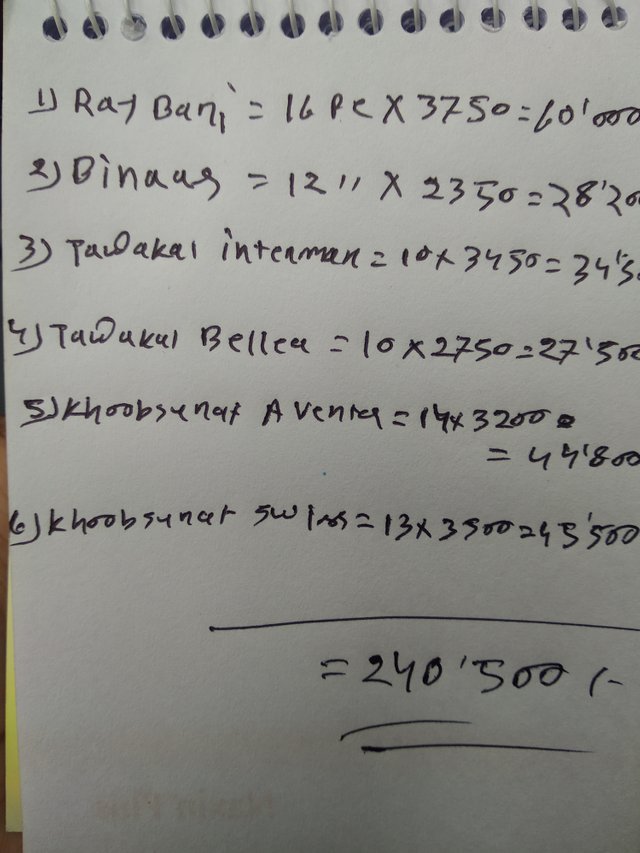 1) Raj Bari = 16 Pc X 3750 = 60'000
2) Binaas = 12 " X 2350 = 28'20
3) Tawakal interman = 10 x 3450 = 34'5
4) Tawakal Bellea = 10 x 2750 = 27'500
5) Khoobsurat Aventa = 14 x 3200
= 44'800
6) Khoobsurat Swiss = 13 x 3500 = 45'500
= 240'500 /-